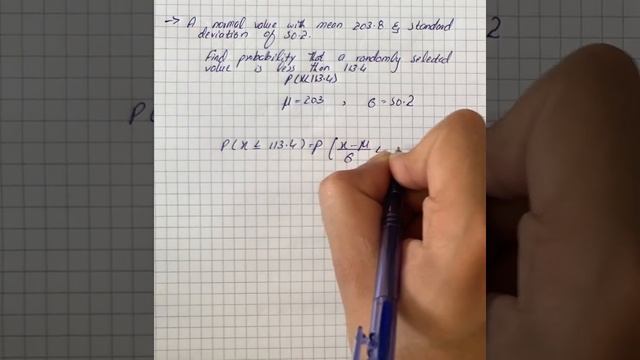 → A normal value with mean 203.8 & standard
deviation of 50.2.
Find probability that a randomly selected
value is less than 113.4
P(x≤113.4)
μ = 203 , σ = 50.2
P(x ≤ 113.4) = P [ x-μ / σ <